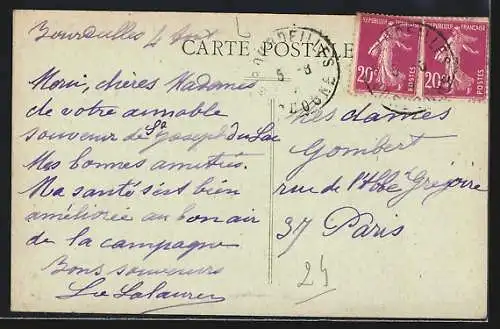 Bourdeilles 4 août
CARTE POSTALE
BOURDEILLES
5 - 8
DORDOGNE
REPUBLIQUE FRANÇAISE
20c
POSTES
REPUBLIQUE FRANÇAISE
20c
POSTES
Merci, chères Mesdames
de votre aimable
souvenir de St Joseph du Lac
Mes bonnes amitiés.
Ma santé s'est bien
améliorée au bon air
de la campagne
Bons souvenirs
Mesdames
Gombert
rue de l'Abbé Grégoire
37 Paris
24